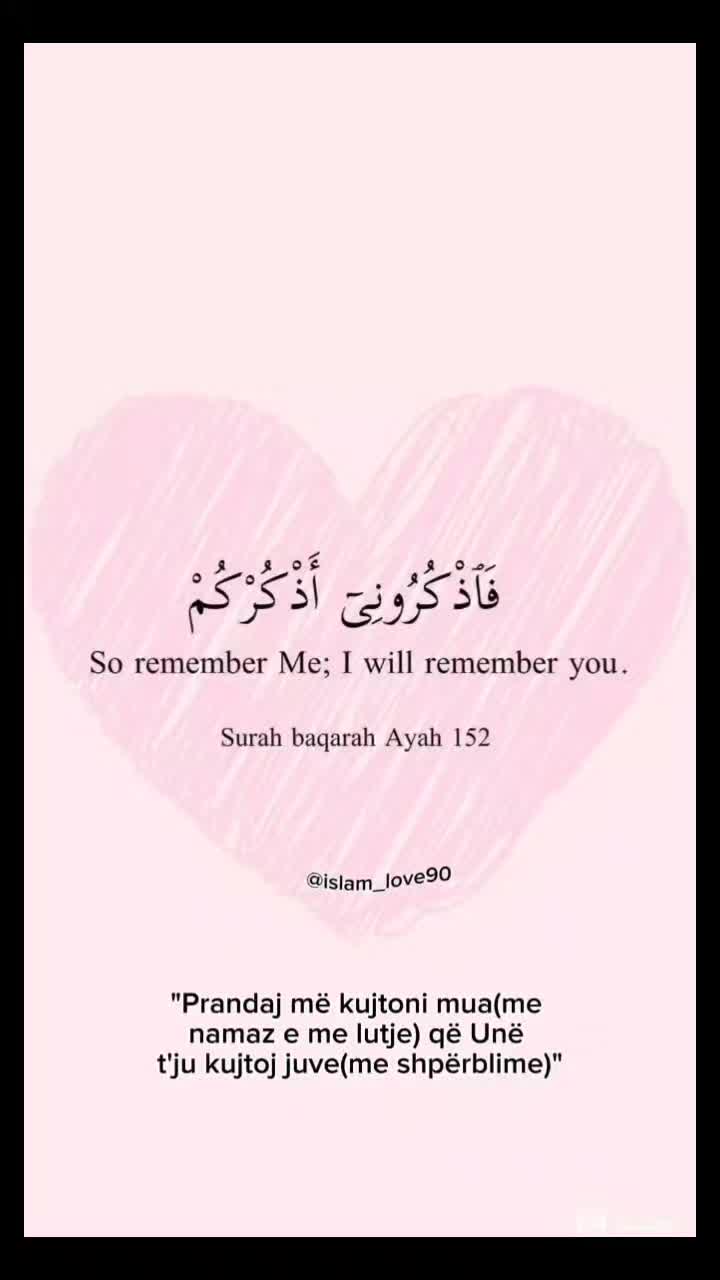 فَٱذْكُرُونِىٓ أَذْكُرْكُمْ
So remember Me; I will remember you.
Surah baqarah Ayah 152
@islam_love90
"Prandaj më kujtoni mua(me
namaz e me lutje) që Unë
t'ju kujtoj juve(me shpërblime)"